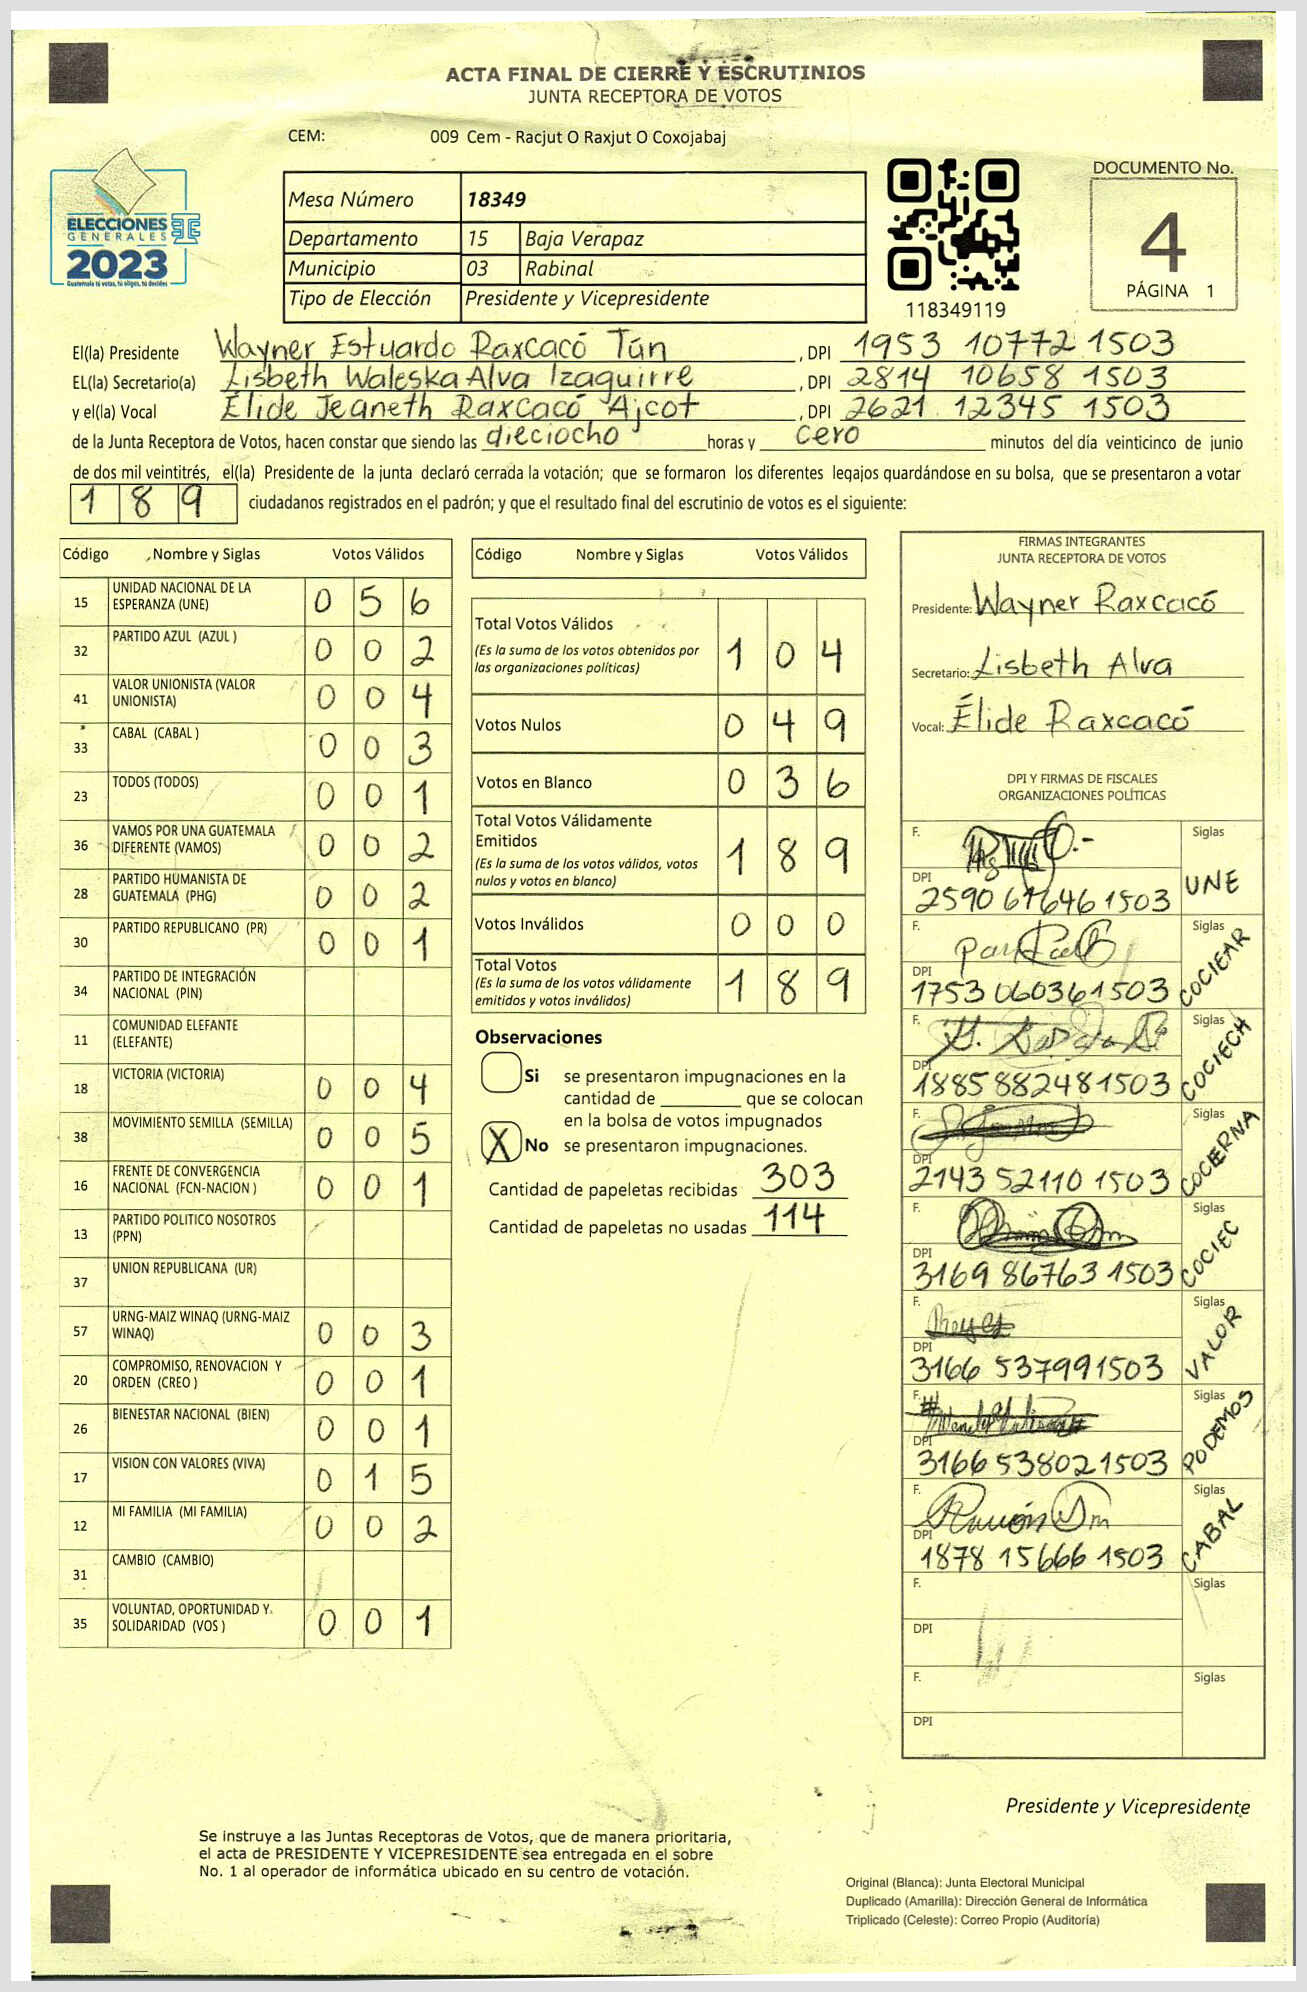 ACTA FINAL DE CIERRE Y ESCRUTINIOS
JUNTA RECEPTORA DE VOTOS
CEM: 009 Cem - Racjut O Raxjut O Coxojabaj
ELECCIONES
GENERALES
2023
Guatemala tú votas, tú eliges, tú decides
Mesa Número 18349
Departamento 15 Baja Verapaz
Municipio 03 Rabinal
Tipo de Elección Presidente y Vicepresidente
118349119
DOCUMENTO No.
4
PÁGINA 1
El(la) Presidente Wayner Estuardo Raxcacó Tún , DPI 1953 10772 1503
EL(la) Secretario(a) Lisbeth Waleska Alva Izaguirre , DPI 2814 10658 1503
y el(la) Vocal Élide Jeaneth Raxcacó Ajcot , DPI 2621 12345 1503
de la Junta Receptora de Votos, hacen constar que siendo las dieciocho horas y cero minutos del día veinticinco de junio
de dos mil veintitrés, el(la) Presidente de la junta declaró cerrada la votación; que se formaron los diferentes legajos quardándose en su bolsa, que se presentaron a votar
189 ciudadanos registrados en el padrón; y que el resultado final del escrutinio de votos es el siguiente:
Código Nombre y Siglas Votos Válidos
15 UNIDAD NACIONAL DE LA ESPERANZA (UNE) 0 5 6
32 PARTIDO AZUL (AZUL ) 0 0 2
41 VALOR UNIONISTA (VALOR UNIONISTA) 0 0 4
33 CABAL (CABAL ) 0 0 3
23 TODOS (TODOS) 0 0 1
36 VAMOS POR UNA GUATEMALA DIFERENTE (VAMOS) 0 0 2
28 PARTIDO HUMANISTA DE GUATEMALA (PHG) 0 0 2
30 PARTIDO REPUBLICANO (PR) 0 0 1
34 PARTIDO DE INTEGRACIÓN NACIONAL (PIN)
11 COMUNIDAD ELEFANTE (ELEFANTE)
18 VICTORIA (VICTORIA) 0 0 4
38 MOVIMIENTO SEMILLA (SEMILLA) 0 0 5
16 FRENTE DE CONVERGENCIA NACIONAL (FCN-NACION ) 0 0 1
13 PARTIDO POLITICO NOSOTROS (PPN)
37 UNION REPUBLICANA (UR)
57 URNG-MAIZ WINAQ (URNG-MAIZ WINAQ) 0 0 3
20 COMPROMISO, RENOVACION Y ORDEN (CREO ) 0 0 1
26 BIENESTAR NACIONAL (BIEN) 0 0 1
17 VISION CON VALORES (VIVA) 0 1 5
12 MI FAMILIA (MI FAMILIA) 0 0 2
31 CAMBIO (CAMBIO)
35 VOLUNTAD, OPORTUNIDAD Y SOLIDARIDAD (VOS ) 0 0 1
Código Nombre y Siglas Votos Válidos
Total Votos Válidos 1 0 4
(Es la suma de los votos obtenidos por
las organizaciones políticas)
Votos Nulos 0 4 9
Votos en Blanco 0 3 6
Total Votos Válidamente
Emitidos 1 8 9
(Es la suma de los votos válidos, votos
nulos y votos en blanco)
Votos Inválidos 0 0 0
Total Votos 1 8 9
(Es la suma de los votos válidamente
emitidos y votos inválidos)
Observaciones
Si se presentaron impugnaciones en la
cantidad de ________ que se colocan
en la bolsa de votos impugnados
X No se presentaron impugnaciones.
Cantidad de papeletas recibidas 303
Cantidad de papeletas no usadas 114
FIRMAS INTEGRANTES
JUNTA RECEPTORA DE VOTOS
Presidente: Wayner Raxcacó
Secretario: Lisbeth Alva
Vocal: Élide Raxcacó
DPI Y FIRMAS DE FISCALES
ORGANIZACIONES POLÍTICAS
F. Siglas
DPI 2590 67646 1503 UNE
F. Siglas
DPI 1753 06036 1503 COCIEAR
F. Siglas
DPI 1885 88248 1503 COCIECH
F. Siglas
DPI 2143 52110 1503 COCIERNA
F. Siglas
DPI 3169 86763 1503 COCIEC
F. Reyes Siglas
DPI 3166 53799 1503 VALOR
F. Siglas
DPI 3166 53802 1503 PODEMOS
F. Ramón Siglas
DPI 1878 15666 1503 CABAL
F. Siglas
DPI
F. Siglas
DPI
Presidente y Vicepresidente
Se instruye a las Juntas Receptoras de Votos, que de manera prioritaria,
el acta de PRESIDENTE Y VICEPRESIDENTE sea entregada en el sobre
No. 1 al operador de informática ubicado en su centro de votación.
Original (Blanca): Junta Electoral Municipal
Duplicado (Amarilla): Dirección General de Informática
Triplicado (Celeste): Correo Propio (Auditoría)